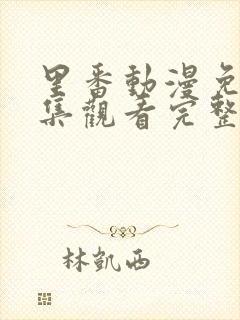 里番動漫免
集觀看完整
林凱西